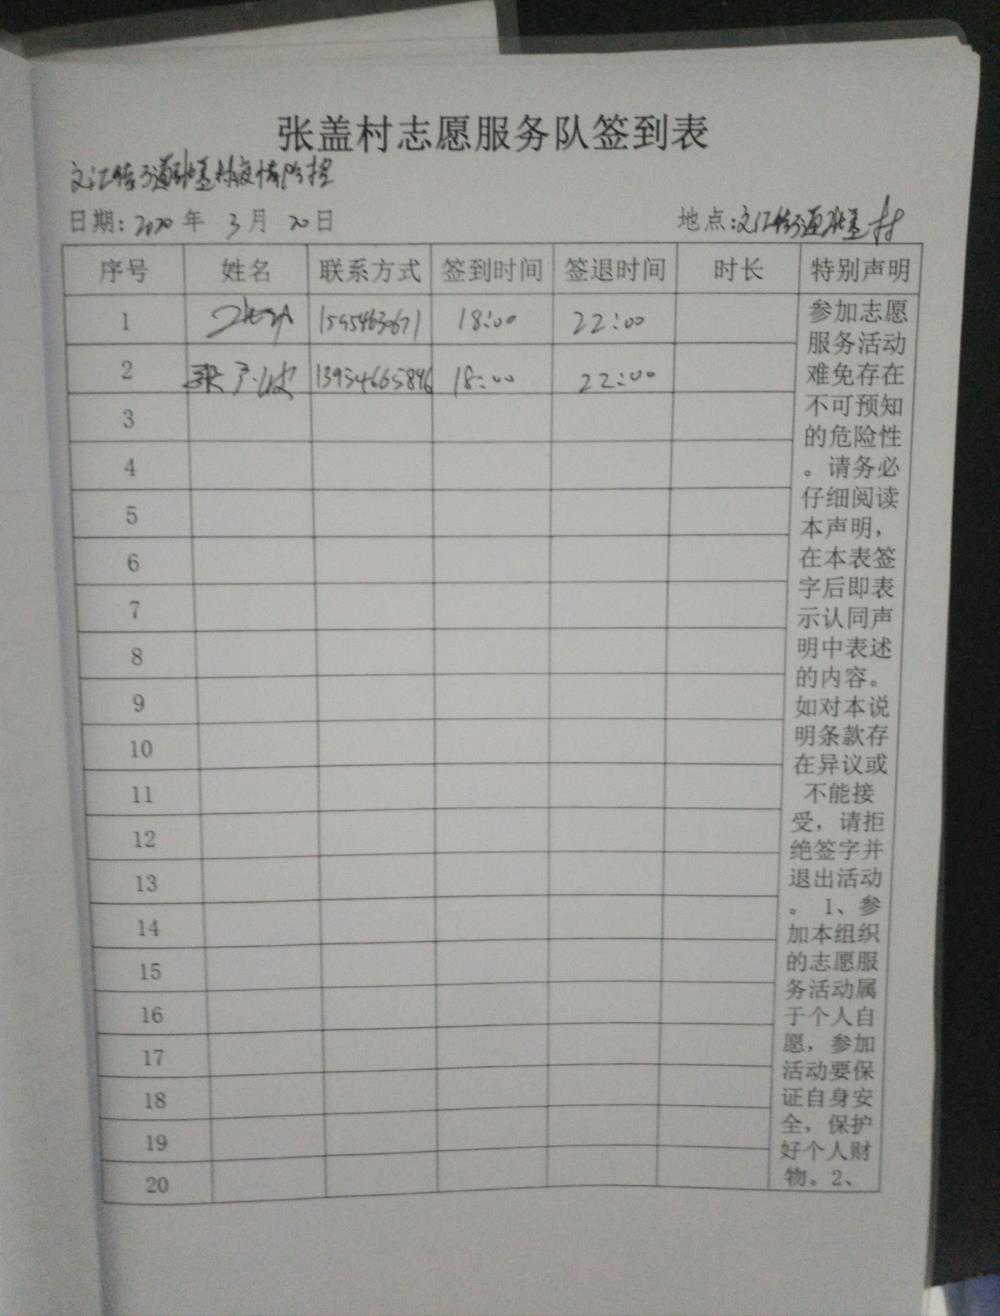 张盖村志愿服务队签到表
文汇街道张盖村疫情防控
日期: 2020 年 3 月 20 日 地点: 文汇街道张盖村
序号 姓名 联系方式 签到时间 签退时间 时长 特别声明
1 18:00 22:00
2 18:00 22:00
3
4
5
6
7
8
9
10
11
12
13
14
15
16
17
18
19
20
参加志愿
服务活动
难免存在
不可预知
的危险性
。请务必
仔细阅读
本声明,
在本表签
字后即表
示认同声
明中表述
的内容。
如对本说
明条款存
在异议或
不能接
受，请拒
绝签字并
退出活动
。 1、参
加本组织
的志愿服
务活动属
于个人自
愿，参加
活动要保
证自身安
全，保护
好个人财
物。2、